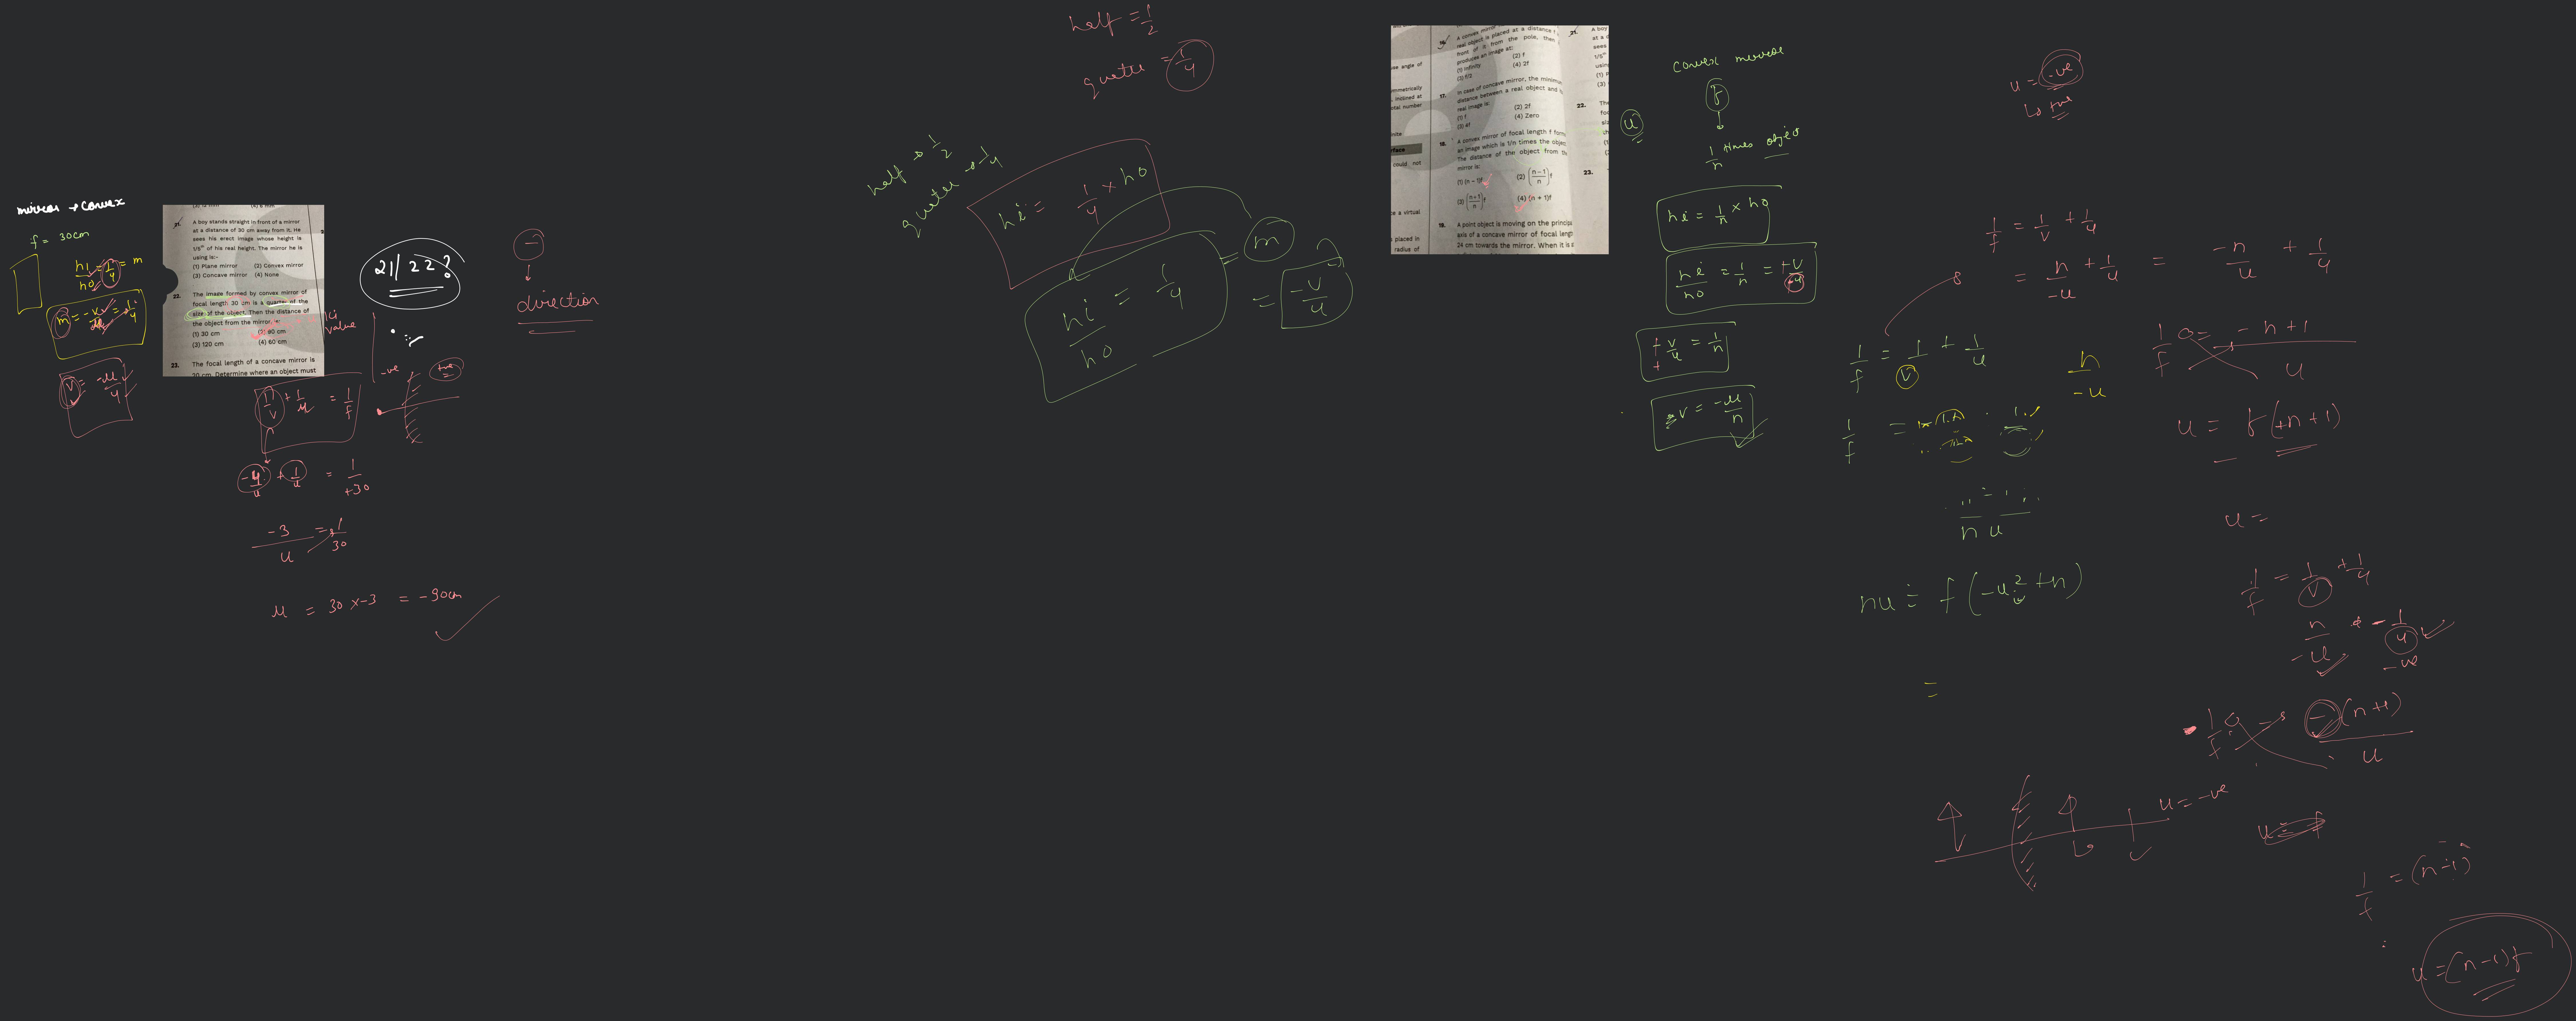 mirror → convex
f = 30cm
hi/ho = 1/4 = m
m = -v/u = 1/4
v = -u/4
21. A boy stands straight in front of a mirror
at a distance of 30 cm away from it. He
sees his erect image whose height is
1/5th of his real height. The mirror he is
using is:-
(1) Plane mirror (2) Convex mirror
(3) Concave mirror (4) None
22. The image formed by convex mirror of
focal length 30 cm is a quarter of the
size of the object. Then the distance of
the object from the mirror, is:
(1) 30 cm (2) 90 cm
(3) 120 cm (4) 60 cm
23. The focal length of a concave mirror is
30 cm. Determine where an object must
value
21//22?
-ve
+ve
1/v + 1/u = 1/f
-4/u + 1/u = 1/+30
-3/u = 1/30
u = 30 x -3 = -90cm
-
direction
half = 1/2
quater = 1/4
half → 1/2
quater → 1/4
hi = 1/4 x ho
hi/ho = 1/4 = m = -v/u
16. A convex mirror
real object is placed at a distance f
front of it from the pole, then
produces an image at:
(1) Infinity (2) f
(3) f/2 (4) 2f
17. In case of concave mirror, the minimum
distance between a real object and
real image is:
(1) f (2) 2f
(3) 4f (4) Zero
18. A convex mirror of focal length f form
an image which is 1/n times the object
The distance of the object from the
mirror is:
(1) (n – 1)f (2) (n–1/n)f
(3) (n+1/n)f (4) (n + 1)f
19. A point object is moving on the princip
axis of a concave mirror of focal leng
24 cm towards the mirror. When it is
ve angle of
ymmetrically
inclined at
tal number
nite
rface
could not
e a virtual
placed in
radius of
21. A boy
at a d
sees
1/5th
using
22. The
23.
convex mirror
f
u
1/n times object
hi = 1/n x ho
hi/ho = 1/n = +v/-u
v/u = 1/n
v = -u/n
u = -ve
↳ +ve
1/f = 1/v + 1/u
= n/-u + 1/u = -n/u + 1/u
1/f = 1/v + 1/u
n/-u
1/f =
n u
nu = f(-u² + n)
=
1/f = -n+1/u
u = f(+n+1)
u =
1/f = 1/v + 1/u
n/-u - 1/u
-ve
1/f = -(n+1)/u
u = -ve
u = f
1/f = (n-1)
u = (n-1)f